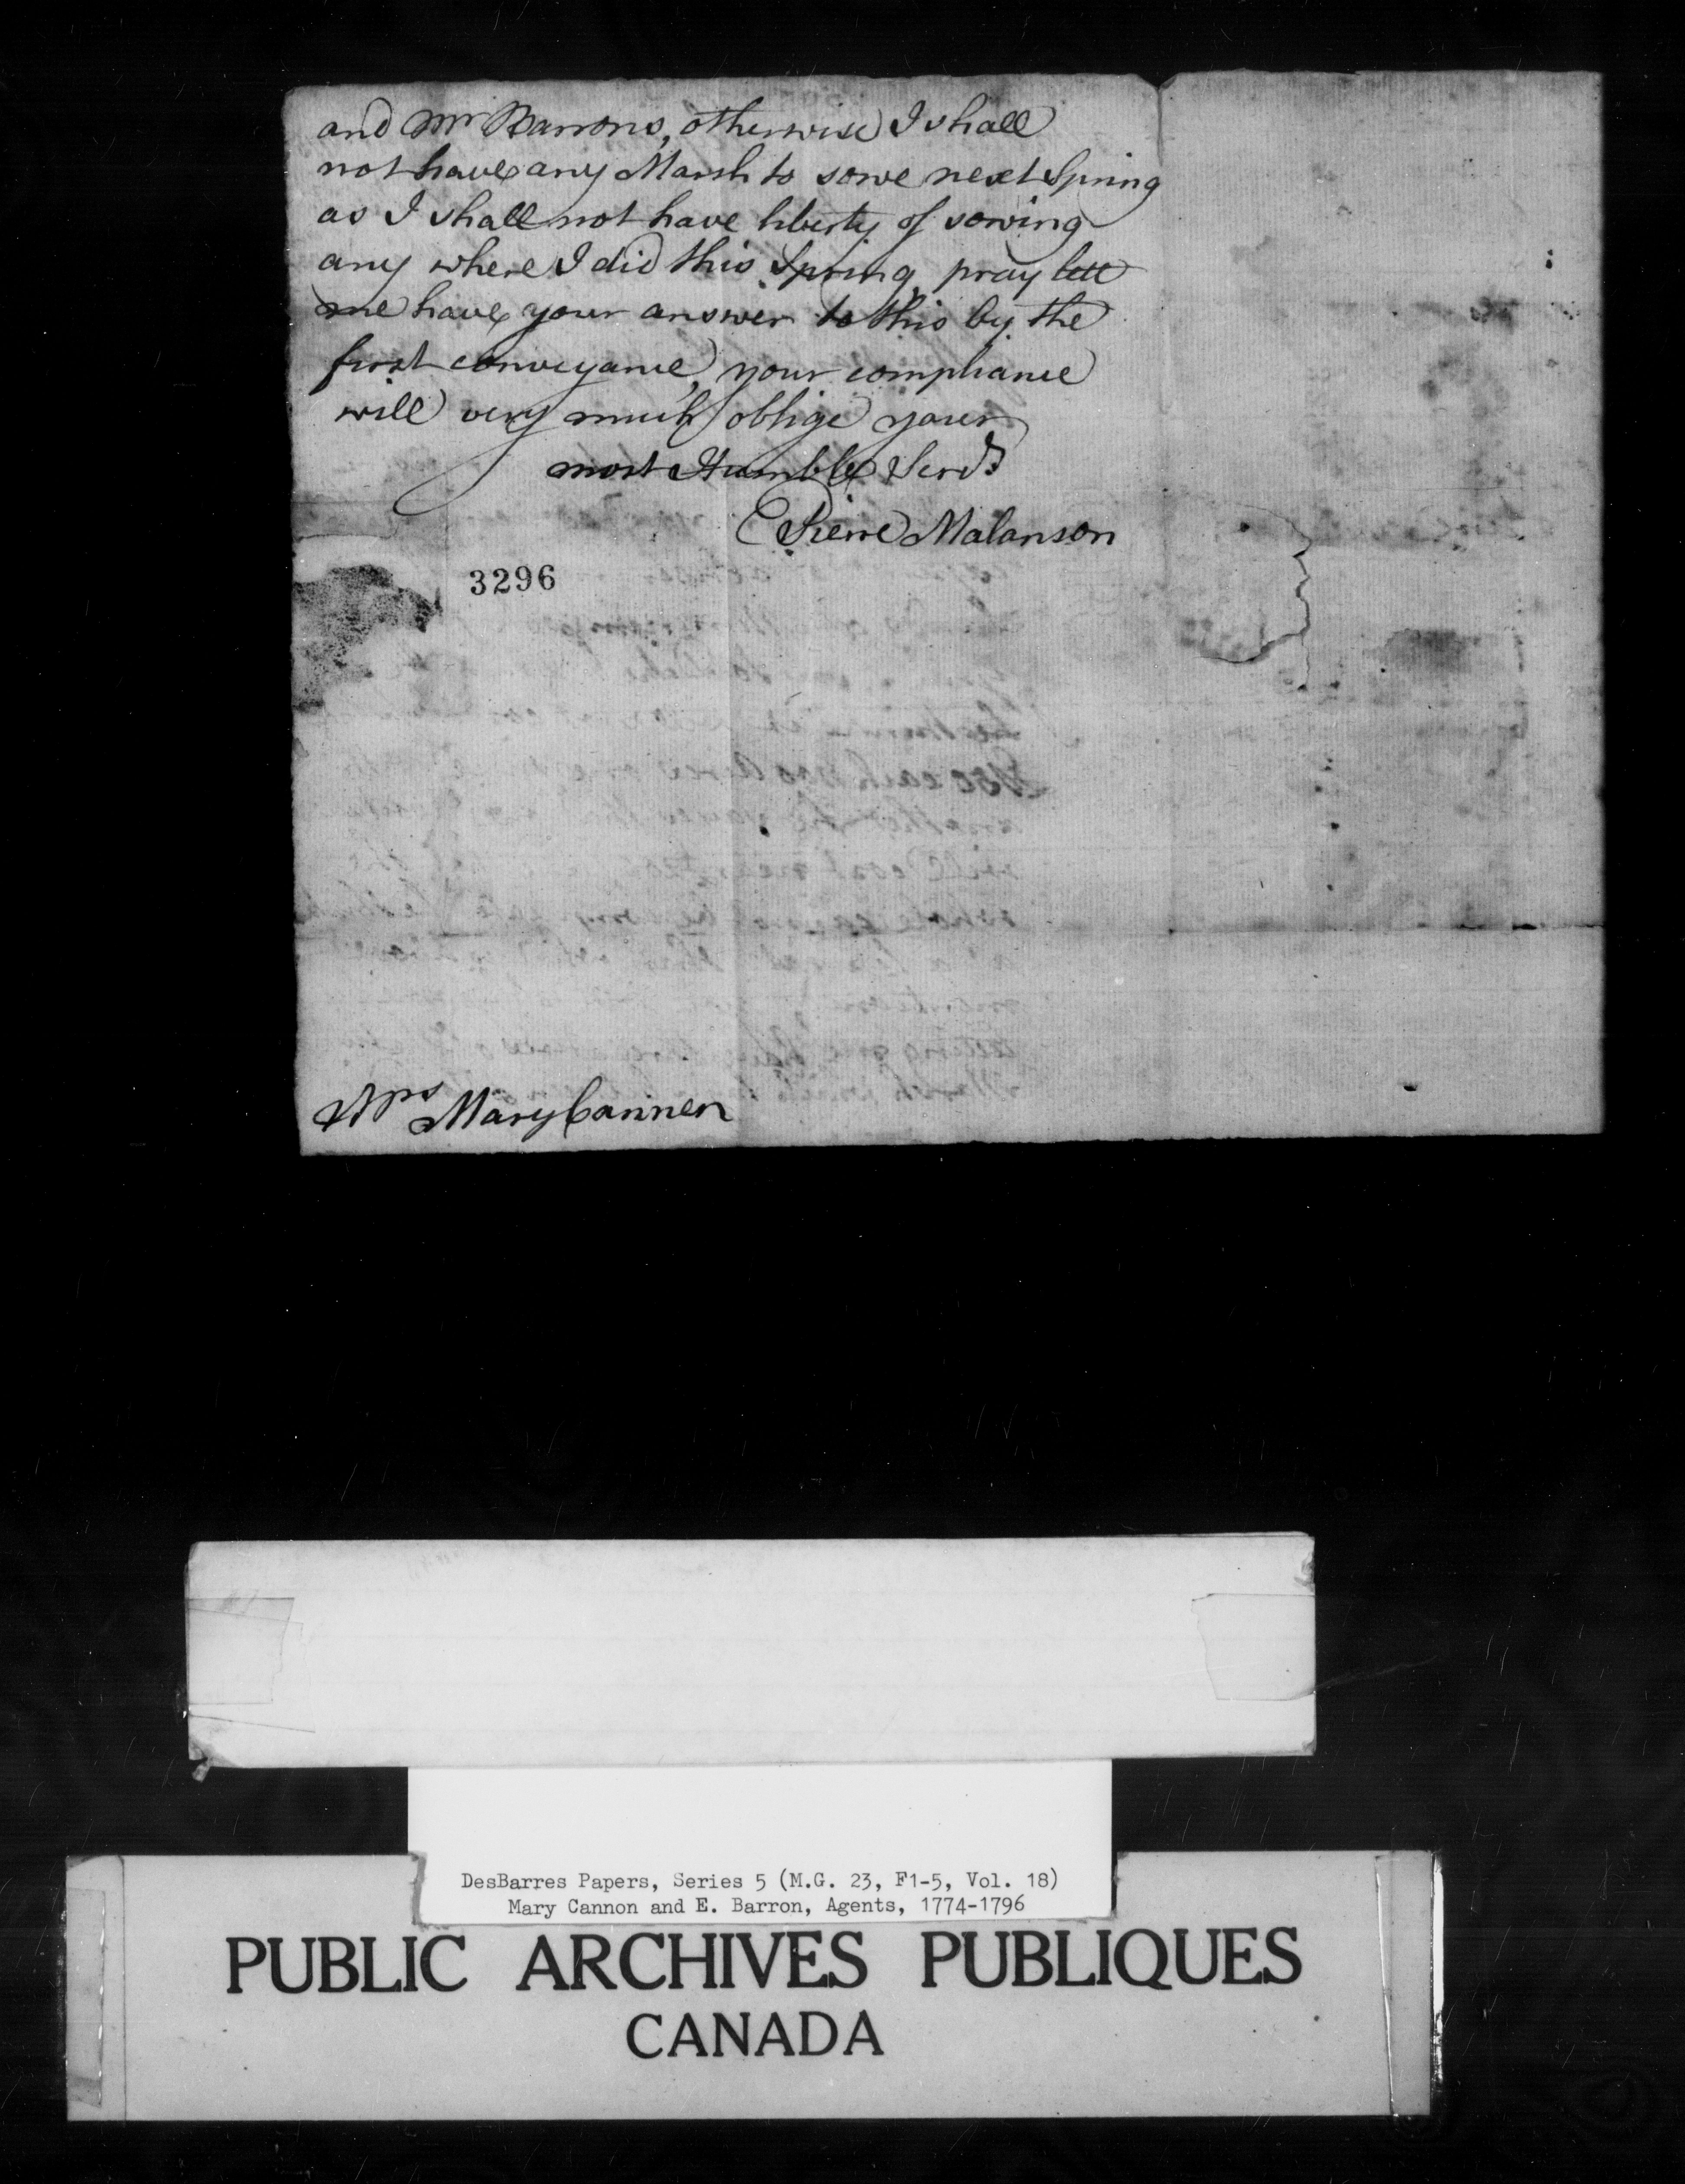 and Mr Barrons, otherwise I shall
not have any Marsh to sowe next Spring
as I shall not have liberty of sowing
any where I did this Spring, pray lett
me have your answer to this by the
first conveyance, your compliance
will very much oblige your
most Humble Servt
Pierre Malanson
3296
Mrs Mary Cannen
DesBarres Papers, Series 5 (M.G. 23, F1-5, Vol. 18)
Mary Cannon and E. Barron, Agents, 1774-1796
PUBLIC ARCHIVES PUBLIQUES
CANADA